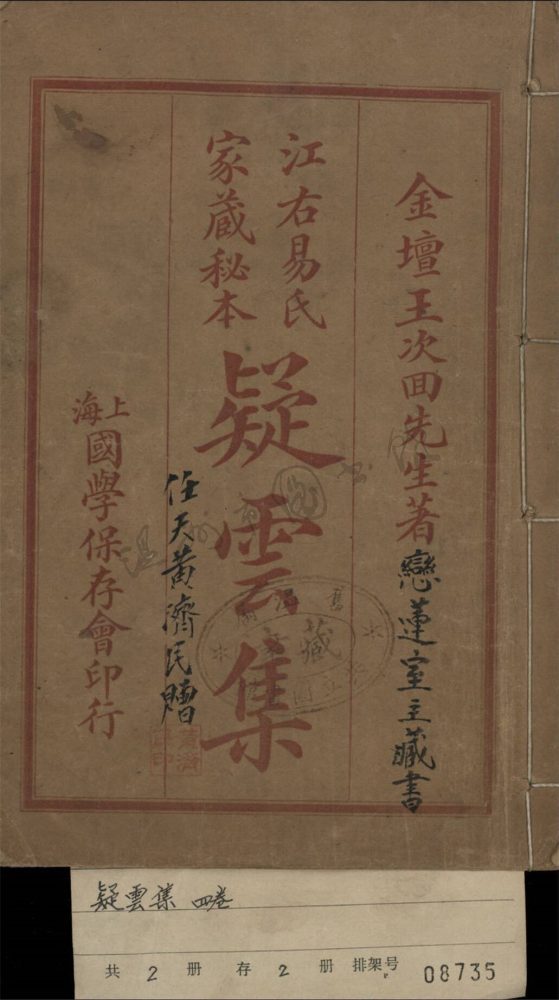 金壇王次回先生著
戀蓮室主藏書
江右易氏
家藏秘本
疑雲集
任天黃濟民贈
上海
國學保存會印行
疑雲集 四卷
共 2 册 存 2 册 排架号 08735